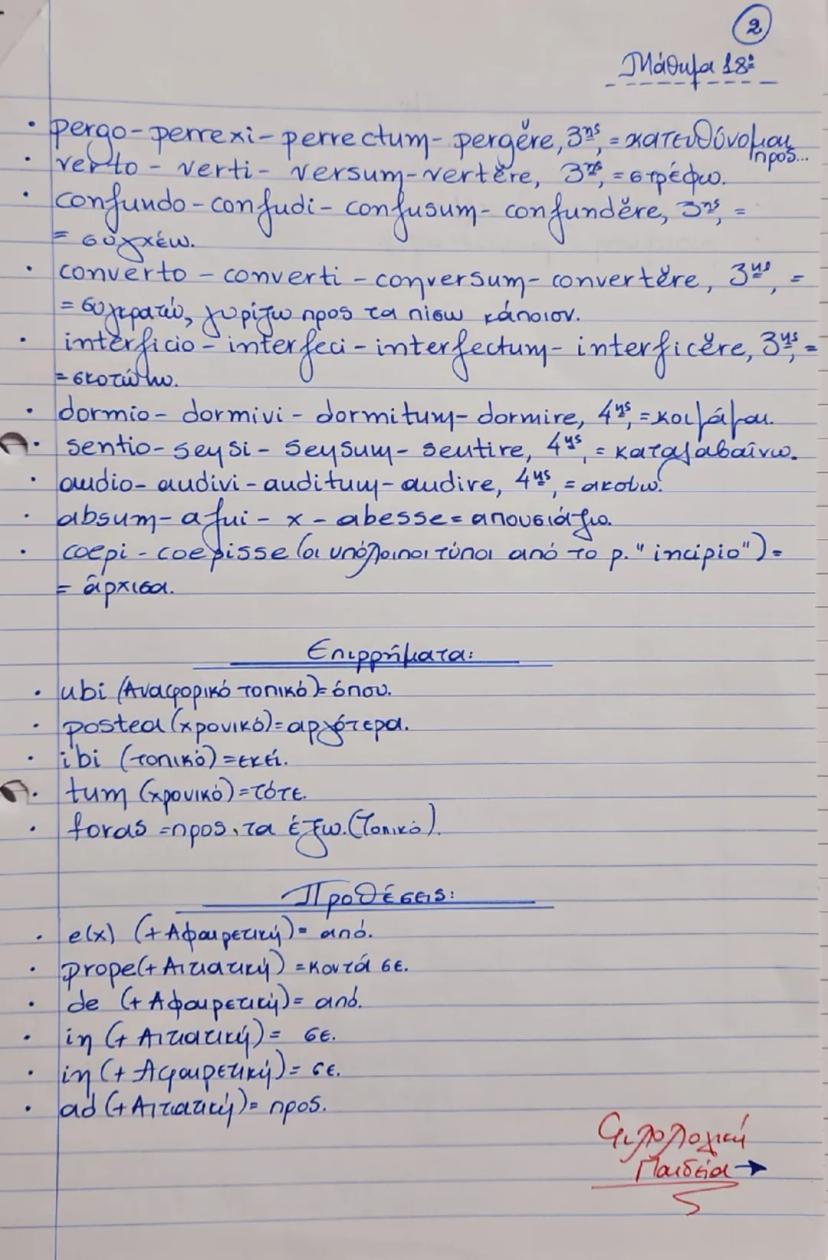 2
Μάθημα 18ο
• pergo - perrexi - perrectum - pergĕre, 3ης, = κατευθύνομαι
προς...
• verto - verti - versum - vertĕre, 3ης, = στρέφω.
• confundo - confudi - confusum - confundĕre, 3ης, =
= συγχέω.
• converto - converti - conversum - convertĕre, 3ης, =
= συγκρατώ, γυρίζω προς τα πίσω κάποιον.
• interficio - interfeci - interfectum - interficĕre, 3ης, =
= σκοτώνω.
• dormio - dormivi - dormitum - dormire, 4ης, = κοιμάμαι.
• sentio - sensi - sensum - sentire, 4ης, = καταλαβαίνω.
• audio - audivi - auditum - audire, 4ης, = ακούω.
• absum - afui - x - abesse = απουσιάζω.
• coepi - coepisse (οι υπόλοιποι τύποι από το ρ. "incipio") =
= άρχισα.
Επιρρήματα:
• ubi (Αναφορικό τοπικό) = όπου.
• postea (χρονικό) = αργότερα.
• ibi (τοπικό) = εκεί.
• tum (χρονικό) = τότε.
• foras = προς τα έξω. (Τοπικό).
Προθέσεις:
• e(x) (+ Αφαιρετική) = από.
• prope (+ Αιτιατική) = κοντά σε.
• de (+ Αφαιρετική) = από.
• in (+ Αιτιατική) = σε.
• in (+ Αφαιρετική) = σε.
• ad (+ Αιτιατική) = προς.
Φιλολογική
Παιδεία →